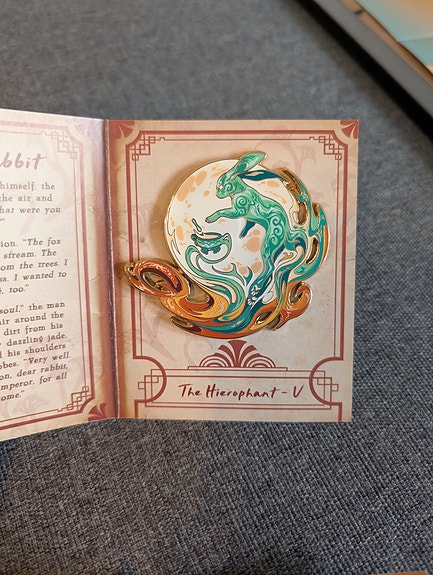 bbit
himself, the
the air and
hat were you
"
ion. "The fox
stream. The
om the trees. I
us. I wanted to
, too."
soul." the man
air around the
dirt from his
dazzling jade,
d his shoulders
obes. "Very well.
on, dear rabbit,
mperor, for all
ome."
The Hierophant - V